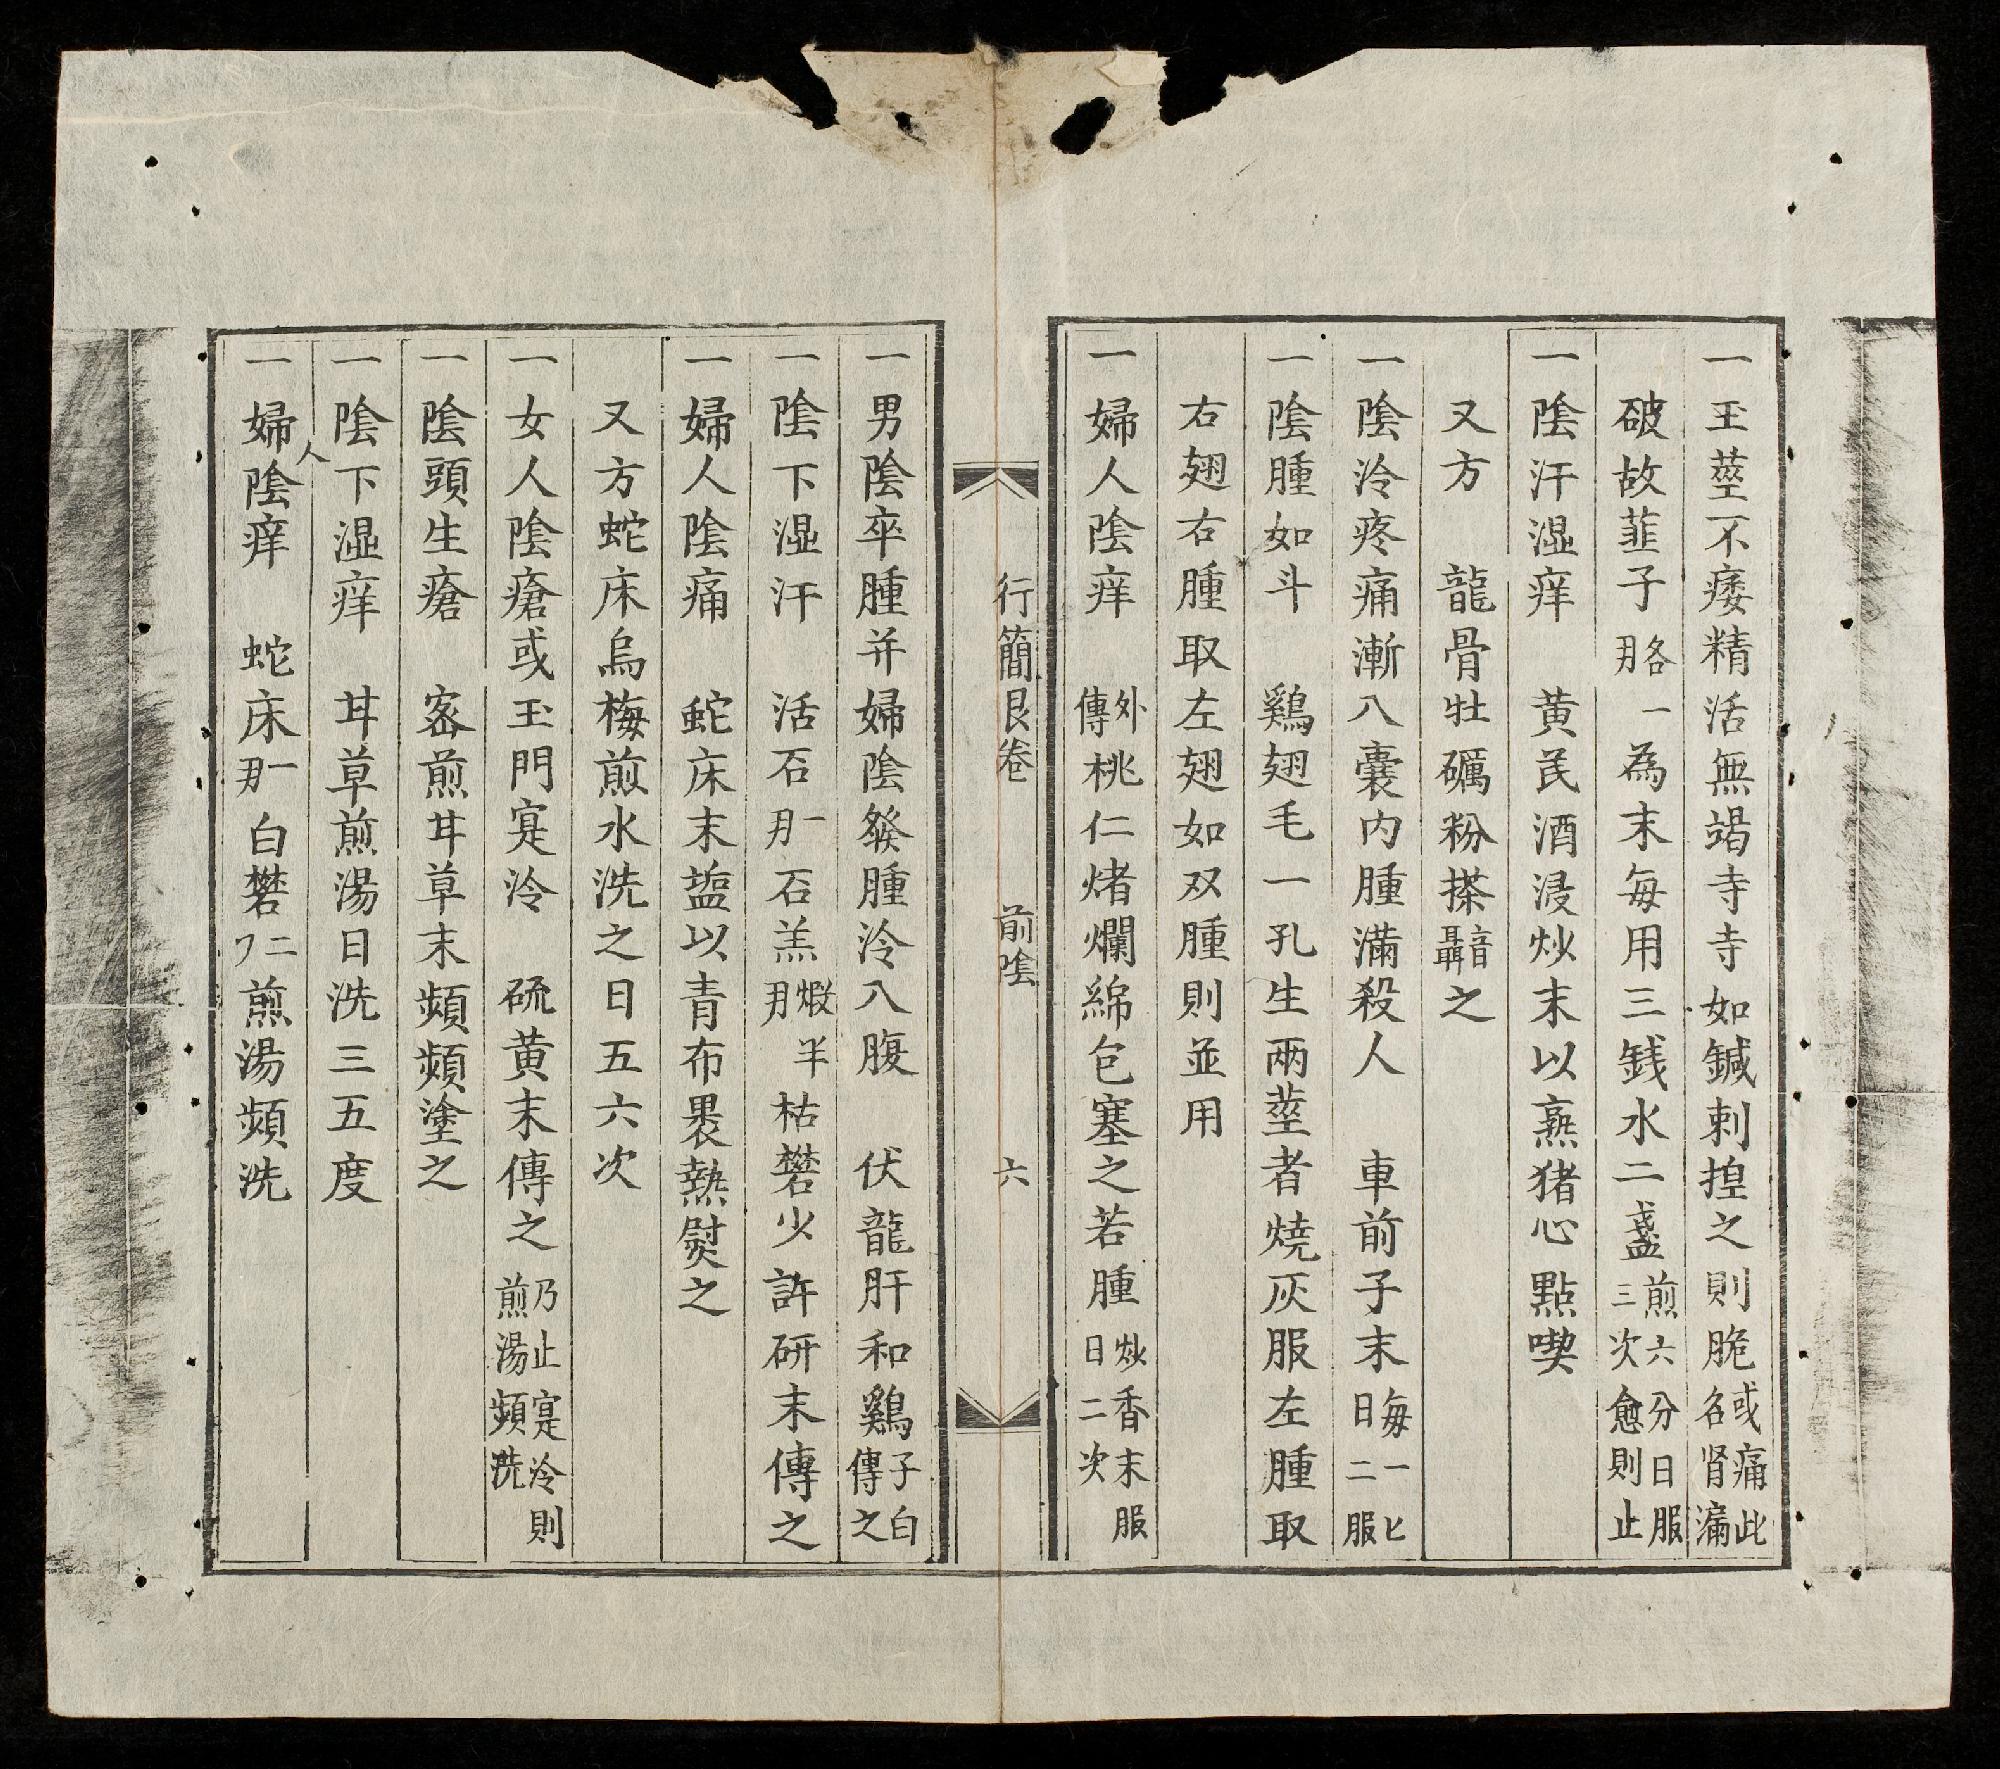 一玉莖不痿精活無竭寺寺如鍼刺揑之則脆或痛此名肾漏
破故韮子各一為末每用三銭水二盞煎六分日服三次愈則止
一陰汗湿痒　黄芪酒浸炒末以熟猪心點喫
又方　龍骨牡礪粉搽之
一陰冷疼痛漸入囊内腫滿殺人　車前子末每一匕日二服
一陰腫如斗　鷄翅毛一孔生兩莖者燒灰服左腫取
右翅右腫取左翅如双腫則並用
一婦人陰痒　外傅桃仁煮爛綿包塞之若腫炒香末服日二次
行簡艮卷　前陰　六
一男陰卒腫并婦陰發腫冷入腹　伏龍肝和鷄子白傅之
一陰下湿汗　活石一石羔煅半枯礬火許研末傅之
一婦人陰痛　蛇床末塩以青布裹熱熨之
又方蛇床烏梅煎水洗之日五六次
一女人陰瘡或玉門寔冷　硫黄末傅之乃止寔冷則煎湯頻洗
一陰頭生瘡　宻煎甘草末頻頻塗之
一陰下湿痒　甘草煎湯日洗三五度
一婦人陰痒　蛇床一白礬二煎湯頻洗